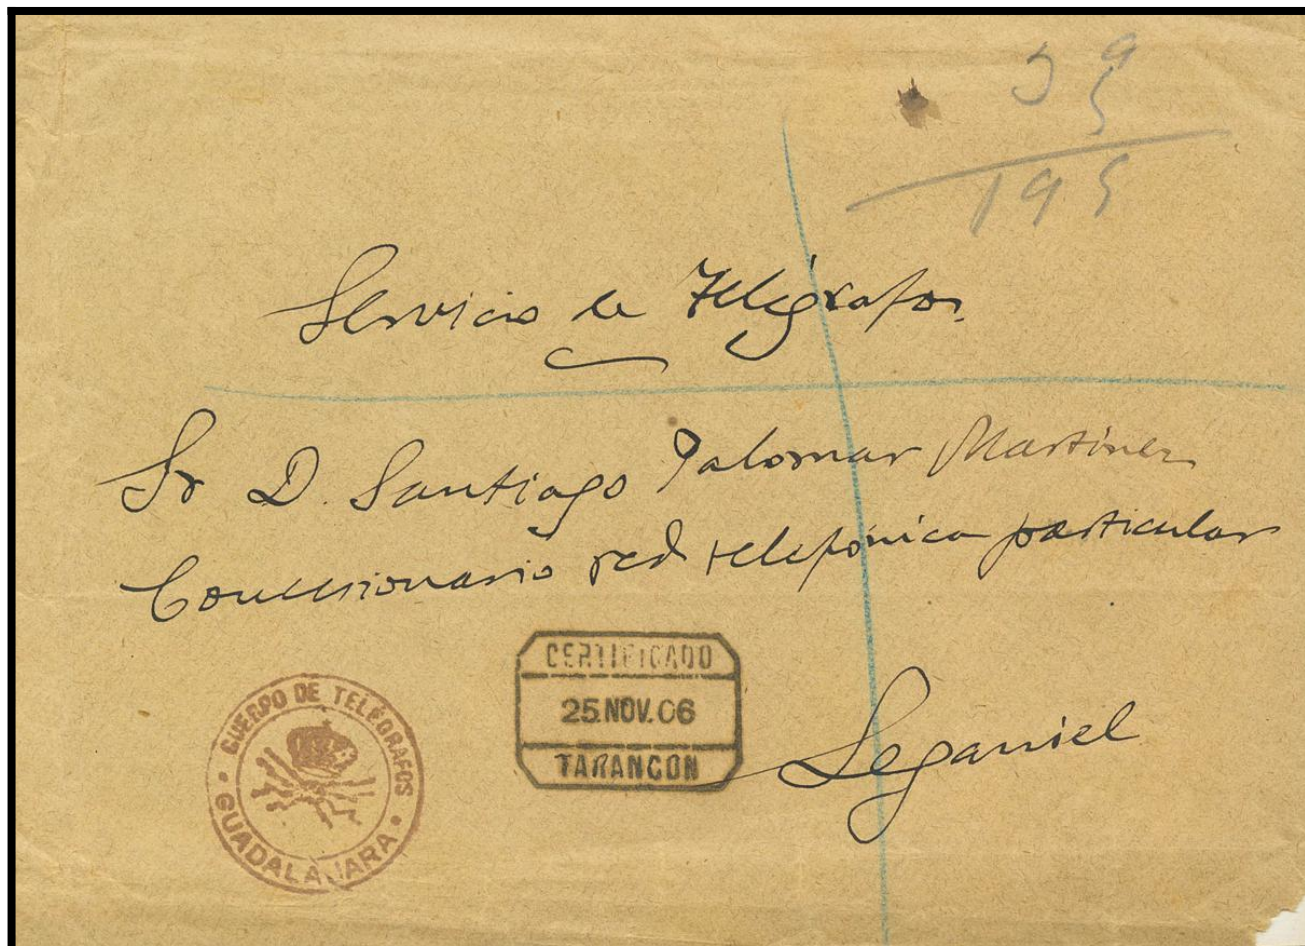 39
5
195
Servicio de Telégrafos.
Sr D. Santiago Palomar Martinez
Concesionario red telefónica particular
CERTIFICADO
25.NOV.06
TARANCON
Leganiel
CUERPO DE TELEGRAFOS
GUADALAJARA